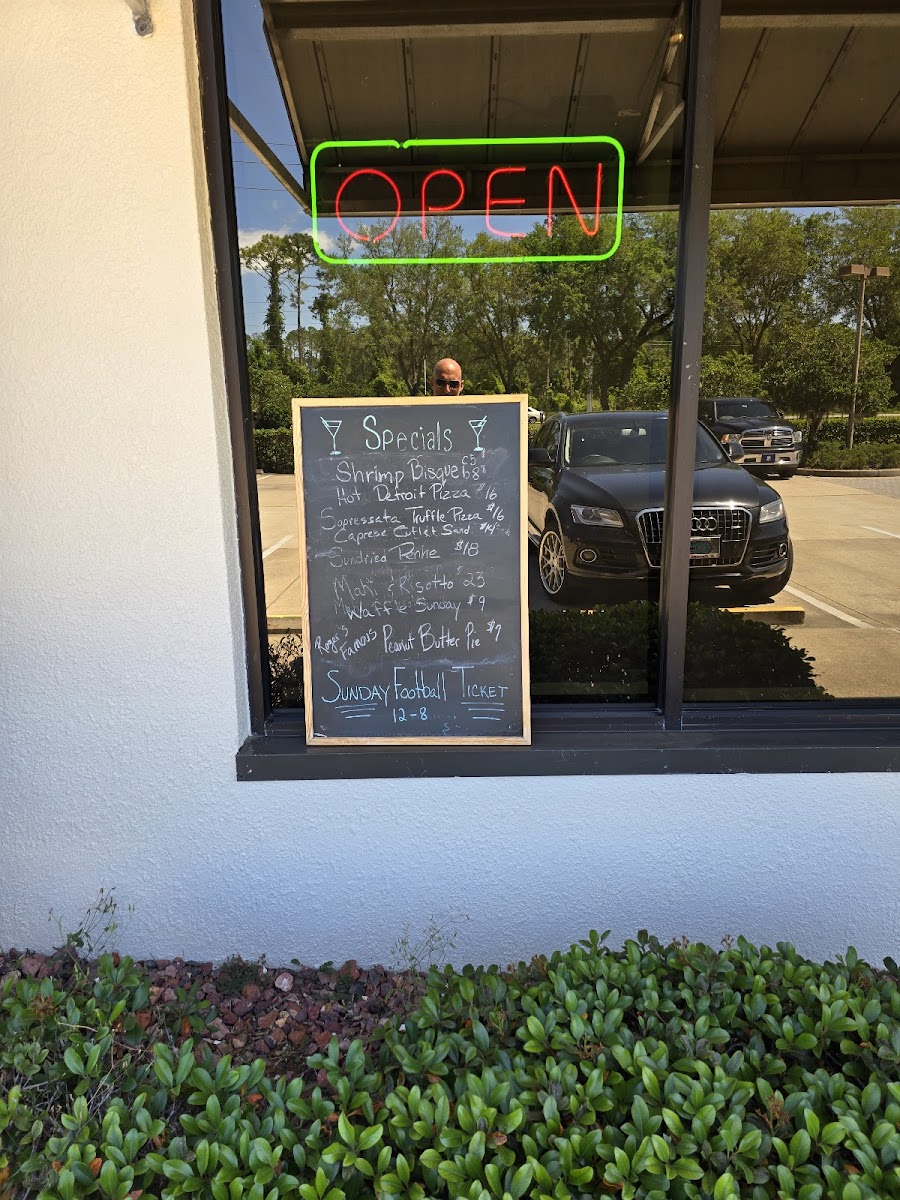 OPEN
Specials
Shrimp Bisque C5 B8
Hot Detroit Pizza $16
Sopressata Truffle Pizza $16
Caprese Cutlet Sand. $14
Sundried Penne $18
Mahi & Risotto $23
Waffle Sunday $9
Roger's Famous Peanut Butter Pie $7
SUNDAY Football TICKET
12-8